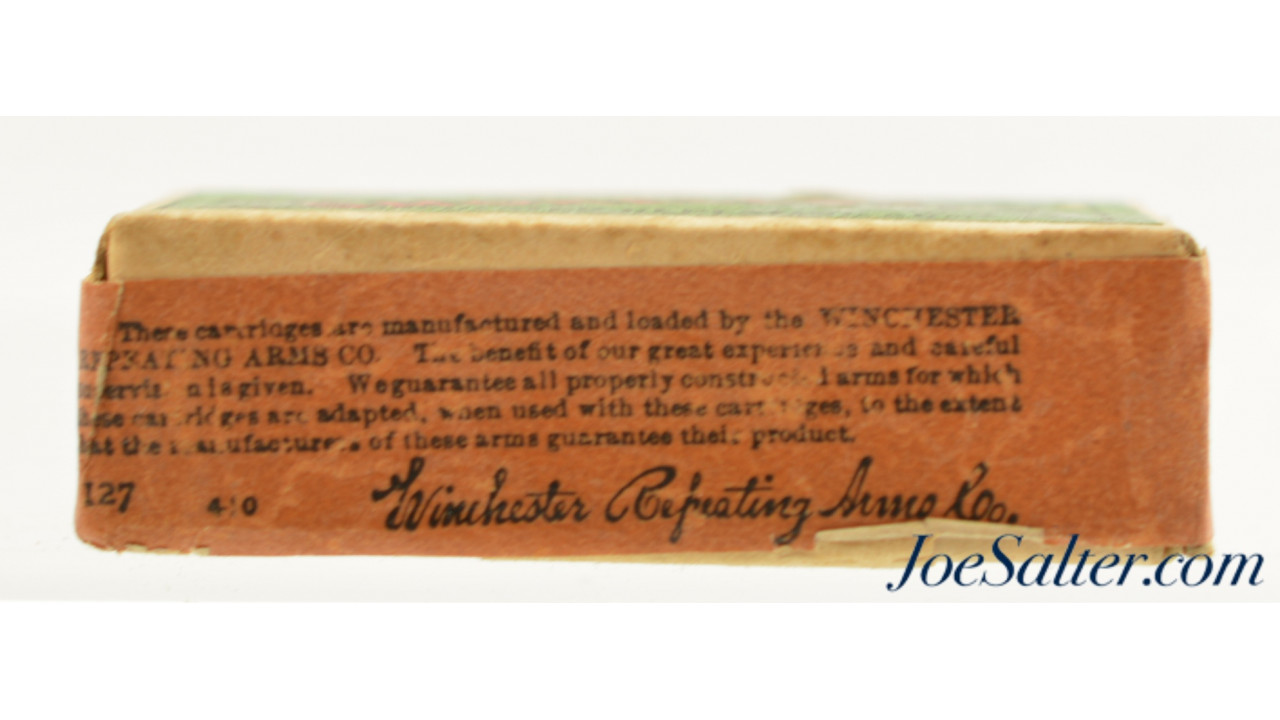 These cartridges are manufactured and loaded by the WINCHESTER
REPEATING ARMS CO. The benefit of our great experience and careful
supervision is given. We guarantee all properly constructed arms for which
these cartridges are adapted, when used with these cartridges, to the extent
that the manufacturers of these arms guarantee their product.
127 410 Winchester Repeating Arms Co.
JoeSalter.com